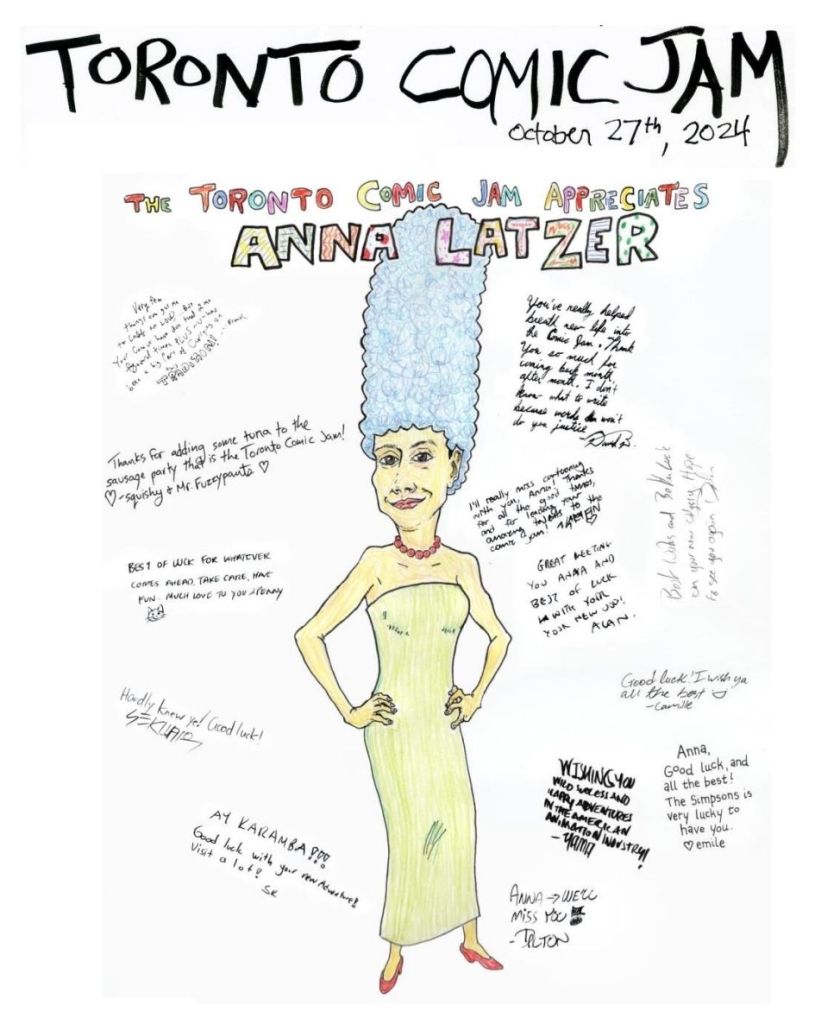 TORONTO COMIC JAM
October 27th, 2024
THE TORONTO COMIC JAM APPRECIATES
ANNA LATZER
Very few
things can get me
You've really helped
breath new life into
the Comic Jam. Thank
you so much for
coming back month
after month. I don't
know what to write
because words won't
do you justice
Thanks for adding some tuna to the
sausage party that is the Toronto Comic Jam!
♡-squishy & Mr. Fuzzypants ♡
I'll really miss cartooning
with you, Anna! Thanks
for all the good times,
and for lending your
amazing talents to the
comic jam!
Best Wishes and Best Luck
on your new odyssey. Hope
to see you again
BEST OF LUCK FOR WHATEVER
COMES AHEAD, TAKE CARE, HAVE
FUN. MUCH LOVE TO YOU
GREAT MEETING
YOU ANNA AND
BEST OF LUCK
WITH YOUR
YOUR NEW JOB!
ALAN.
Good luck! I wish ya
all the best
-Camille
Hardly knew ye! Good luck!
WISHING YOU
WILD SUCCESS AND
HAPPY ADVENTURES
IN THE AMERICAN
ANIMATION INDUSTRY!
-YAMA
Anna,
Good luck, and
all the best!
The Simpsons is
very lucky to
have you.
♡ emile
AY KARAMBA!!!
Good luck with your new Adventure!!
Visit a lot!
SK
ANNA → WE'LL
MISS YOU
- DALTON